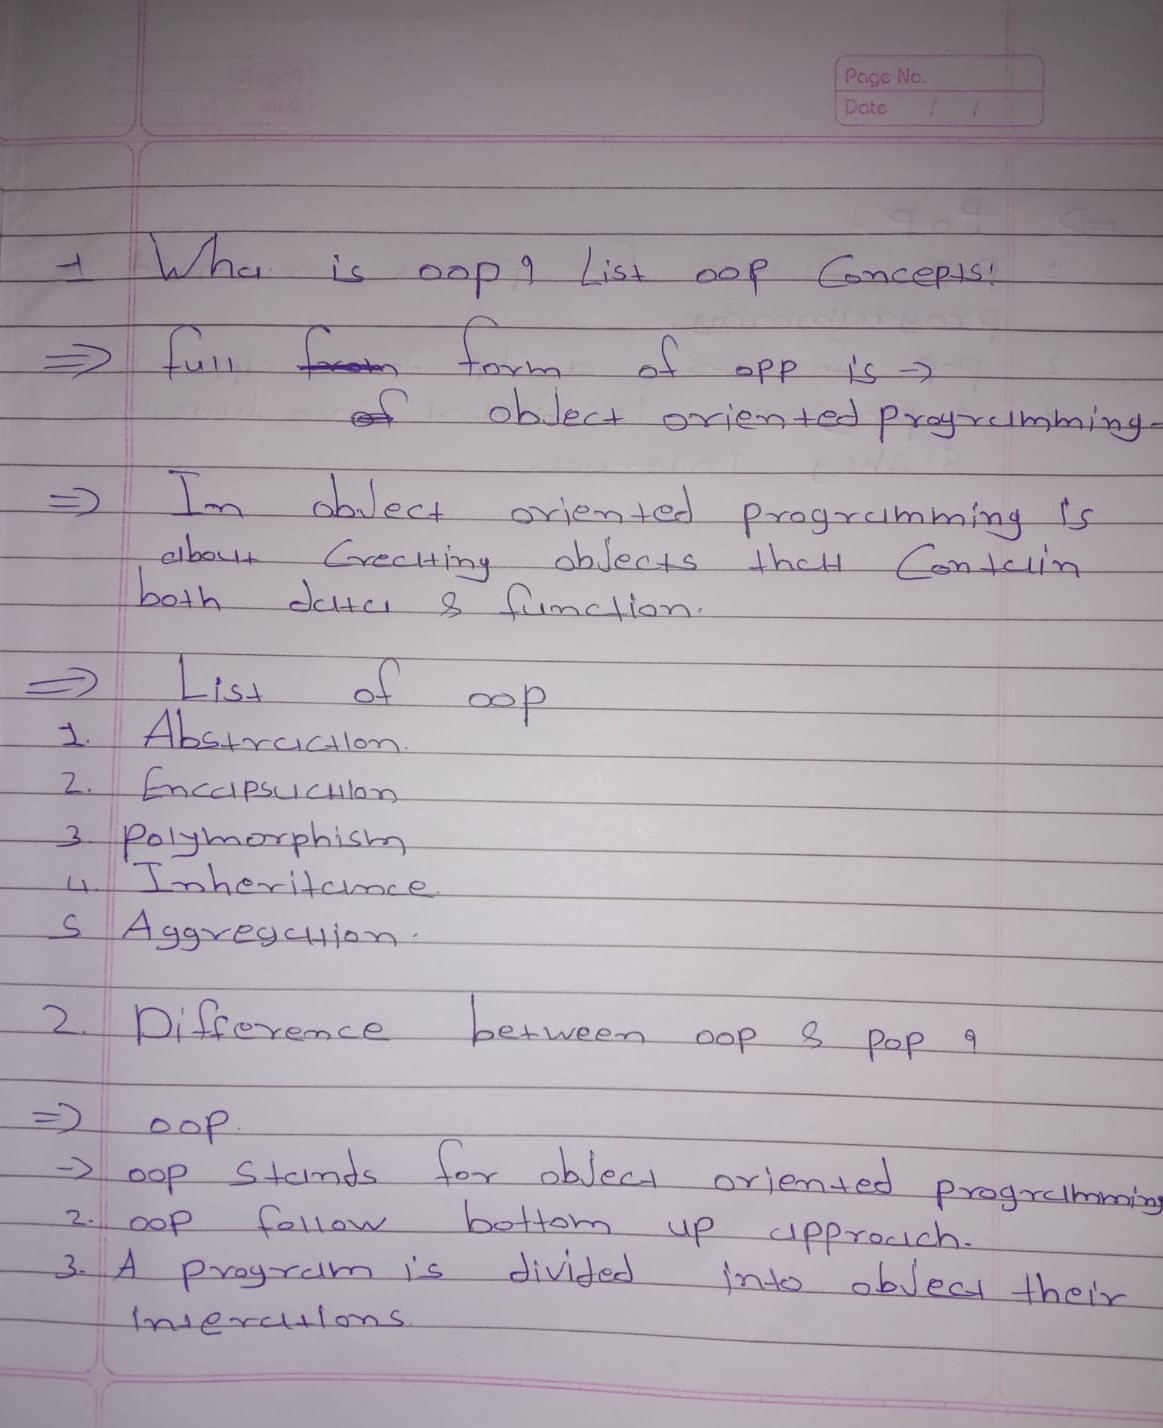 Page No.
Date / /
1 Wha is oop? List oop Concepts!
⇒ full from form of opp is →
of object oriented programming-
⇒ In object oriented programming is
about Creating objects that Contain
both data & function.
⇒ List of oop
1. Abstraction.
2. Encapsuation
3. Polymorphism
4. Inheritance.
5 Aggregation.
2. Difference between oop & pop ?
⇒ oop.
→ oop stands for object oriented programming
2. oop follow bottom up approach.
3. A program is divided into object their
Interations.